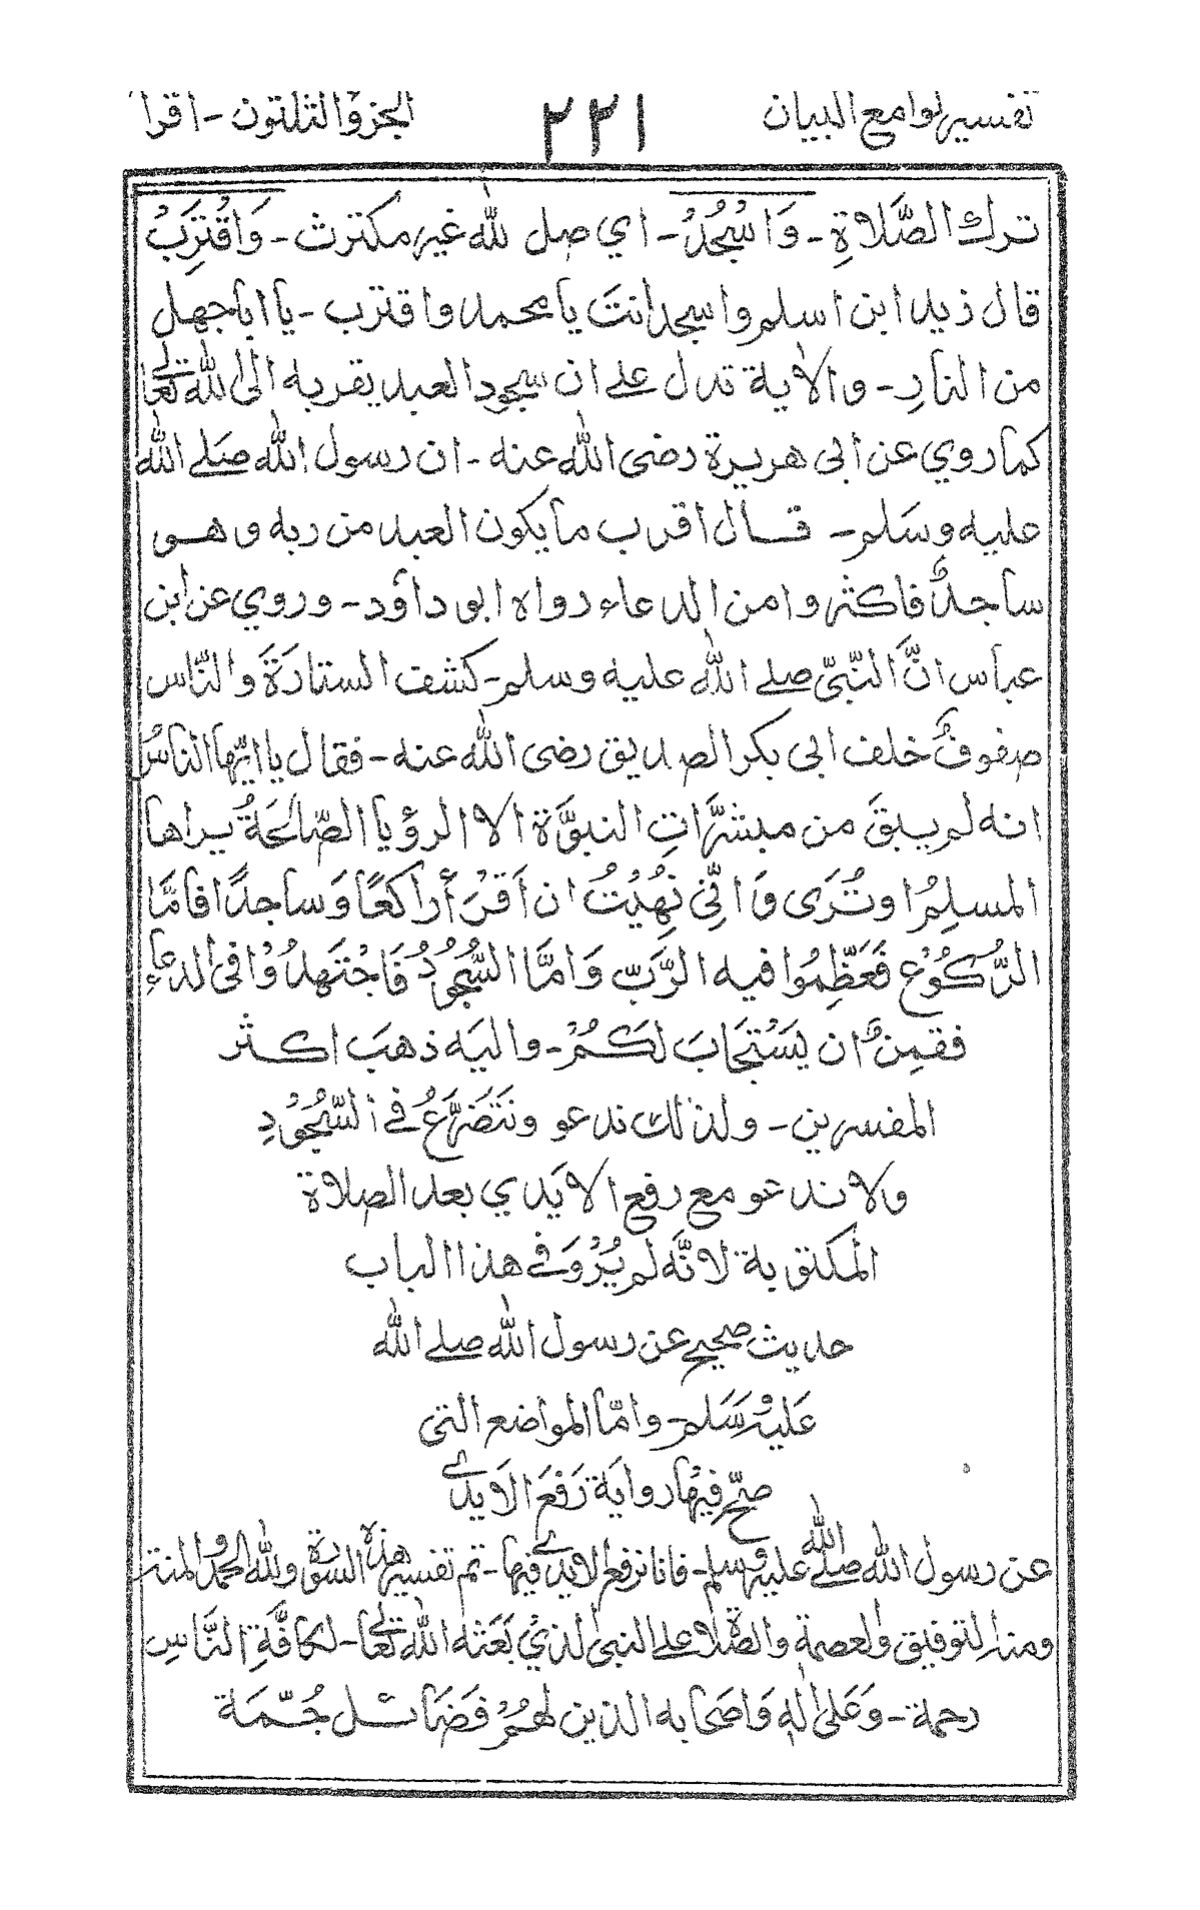 تفسير لوامع البيان ٢٢١ الجزؤ الثلثون - اقرا
ترك الصَّلاةِ - وَاسْجُدْ - اي صل لله غير مكترث - وَاقْتَرِبْ
قال زيد ابن اسلم واسجد انتَ يا محمد واقترب - يا ابا جهل
من النارِ - والاية تدل على ان سجود العبد يقربه الى الله تعالى
كما روي عن ابي هريرة رضى الله عنه - ان رسول الله صَلى الله
عليه وسَلم - قال اقرب ما يكون العبد من ربه وهو
ساجدٌ فاكثروا من الدعاء رواه ابو داؤد - وروي عن ابن
عباس انَّ النَّبيّ صلى الله عليه وسلم - كشف الستارَةَ والنّاس
صفوفٌ خلف ابى بكر الصديق رضى الله عنه - فقال يا ايّها الناسُ
انه لم يبقَ من مبشرَّاتِ النبوَّة الا الرؤيا الصّالحَةُ يراها
المسلِمُ او تُرَى وَ انِّي نُهِيْتُ ان اَقْرَأ راكعًا وَساجدًا فامَّا
الرُّكُوْع فَعَظِّمُوا فيه الرَّبّ وَامَّا السُّجُودُ فَاجْتَهِدُوْا في الدعاءِ
فقمِنٌ ان يَسْتَجَابَ لَكُمْ - واليَه ذهبَ اكثر
المفسرين - ولذلك ندعو ونَتَضَرَّعُ في السُّجُوْدِ
ولا ندعو مع رفع الايَدي بعد الصلاة
المكتوبة لانَّه لم يُرْوَ في هذا الباب
حديث صحيح عن رسول الله صلى الله
عَليْه وسَلم - وامّا المواضع التى
صحّ فيْها روايَة رَفعَ الاَيدي
عن رسول الله صلى الله عليه وسلم - فانا نرفع الايدي فيها - تم تفسير هذه السورة ولله الحمد والمنة
ومنه التوفيق والعصمة والصّلاة على النبى الذي بَعَثه الله تعالى - لكافَّةِ النَّاسِ
رحمة - وَعَلى اٰلهٖ وَاصحَابه الذين لهُمْ فَضَائل جُمّمَة